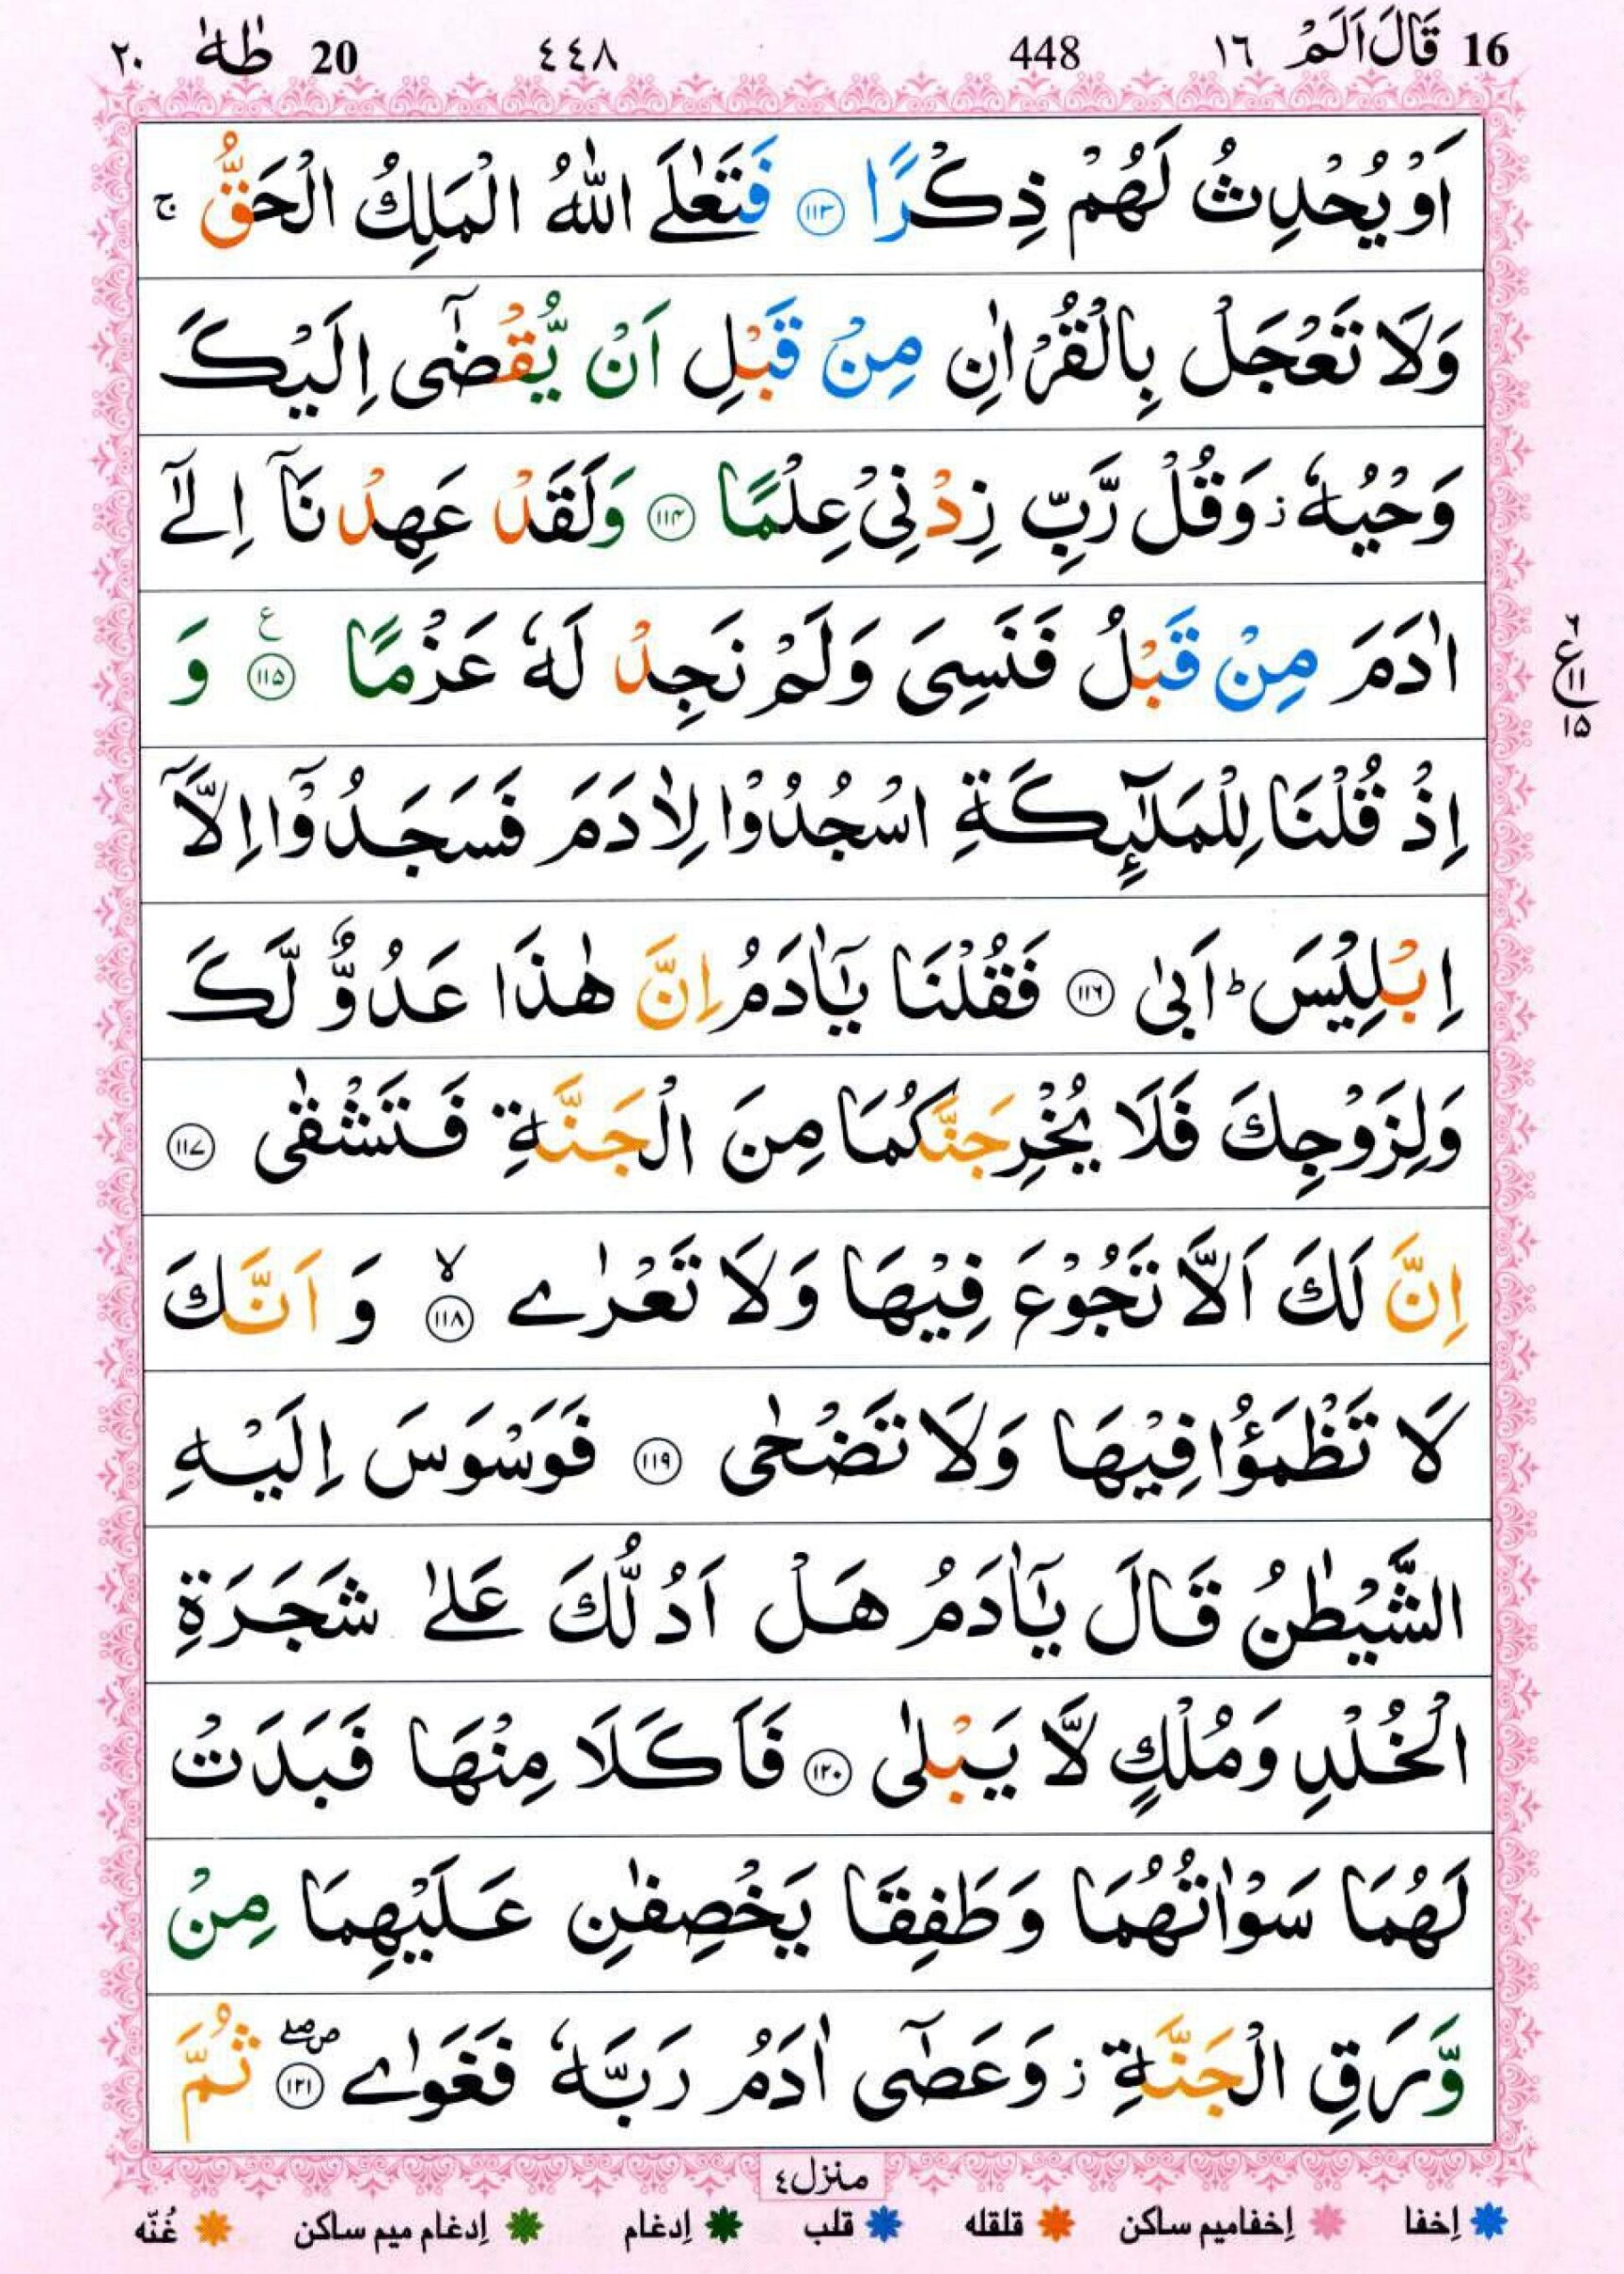 16 قَالَ اَلَمْ ١٦ 448 ٤٤٨ 20 طٰهٰ ٢٠
اَوْ يُحْدِثُ لَهُمْ ذِكْرًا ﴿۱۱۳﴾ فَتَعٰلَى اللّٰهُ الْمَلِكُ الْحَقُّ ۚ
وَلَا تَعْجَلْ بِالْقُرْاٰنِ مِنْ قَبْلِ اَنْ يُّقْضٰٓى اِلَيْكَ
وَحْيُهٗ ؗ وَقُلْ رَّبِّ زِدْنِىْ عِلْمًا ﴿۱۱۴﴾ وَلَقَدْ عَهِدْنَاۤ اِلٰٓى
اٰدَمَ مِنْ قَبْلُ فَنَسِىَ وَلَمْ نَجِدْ لَهٗ عَزْمًا ﴿۱۱۵﴾ ع وَ
٦ ع ١١ ١۵
اِذْ قُلْنَا لِلْمَلٰٓئِكَةِ اسْجُدُوْا لِاٰدَمَ فَسَجَدُوْۤا اِلَّاۤ
اِبْلِيْسَ ؕ اَبٰى ﴿۱۱۶﴾ فَقُلْنَا يٰۤاٰدَمُ اِنَّ هٰذَا عَدُوٌّ لَّكَ
وَلِزَوْجِكَ فَلَا يُخْرِجَنَّكُمَا مِنَ الْجَنَّةِ فَتَشْقٰى ﴿۱۱۷﴾
اِنَّ لَكَ اَلَّا تَجُوْعَ فِيْهَا وَلَا تَعْرٰى ۙ ﴿۱۱۸﴾ وَ اَنَّكَ
لَا تَظْمَؤُا فِيْهَا وَلَا تَضْحٰى ﴿۱۱۹﴾ فَوَسْوَسَ اِلَيْهِ
الشَّيْطٰنُ قَالَ يٰۤاٰدَمُ هَلْ اَدُلُّكَ عَلٰى شَجَرَةِ
الْخُلْدِ وَمُلْكٍ لَّا يَبْلٰى ﴿۱۲۰﴾ فَاَكَلَا مِنْهَا فَبَدَتْ
لَهُمَا سَوْاٰتُهُمَا وَطَفِقَا يَخْصِفٰنِ عَلَيْهِمَا مِنْ
وَّرَقِ الْجَنَّةِ ؗ وَعَصٰٓى اٰدَمُ رَبَّهٗ فَغَوٰى ۖ ﴿۱۲۱﴾ ثُمَّ
منزل٤
إخفا إخفاميم ساكن قلقله قلب إدغام إدغام ميم ساكن غُنّه